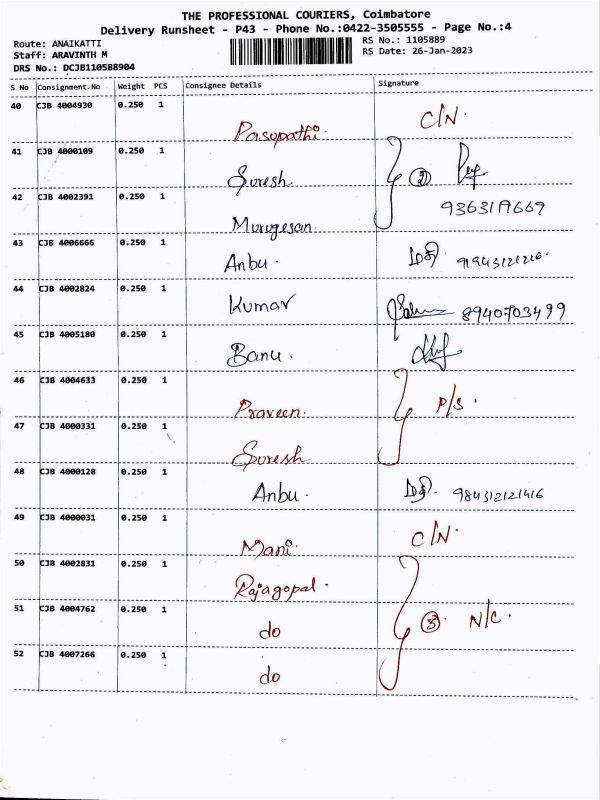 THE PROFESSIONAL COURIERS, Coimbatore
Delivery Runsheet - P43 - Phone No.:0422-3505555 - Page No.:4
Route: ANAIKATTI
Staff: ARAVINTH M
DRS No.: DCJB110588904
RS No.: 1105889
RS Date: 26-Jan-2023
S No Consignment.No Weight PCS Consignee Details Signature
40 CJB 4004930 0.250 1 Pasupathi. C/N.
41 CJB 4000109 0.250 1 Suresh ②
42 CJB 2002391 0.250 1 Murugesan
43 CJB 4006666 0.250 1 Anbu.
44 CJB 4002824 0.250 1 Kumar 8940703499
45 CJB 4005180 0.250 1 Banu.
46 CJB 4004633 0.250 1 Praveen. P/S.
47 CJB 4000331 0.250 1 Suresh
48 CJB 4000128 0.250 1 Anbu.
49 CJB 4000031 0.250 1 Mani. C/N.
50 CJB 4002831 0.250 1 Rajagopal.
51 CJB 4004762 0.250 1 do ③ N/C.
52 CJB 4007266 0.250 1 do